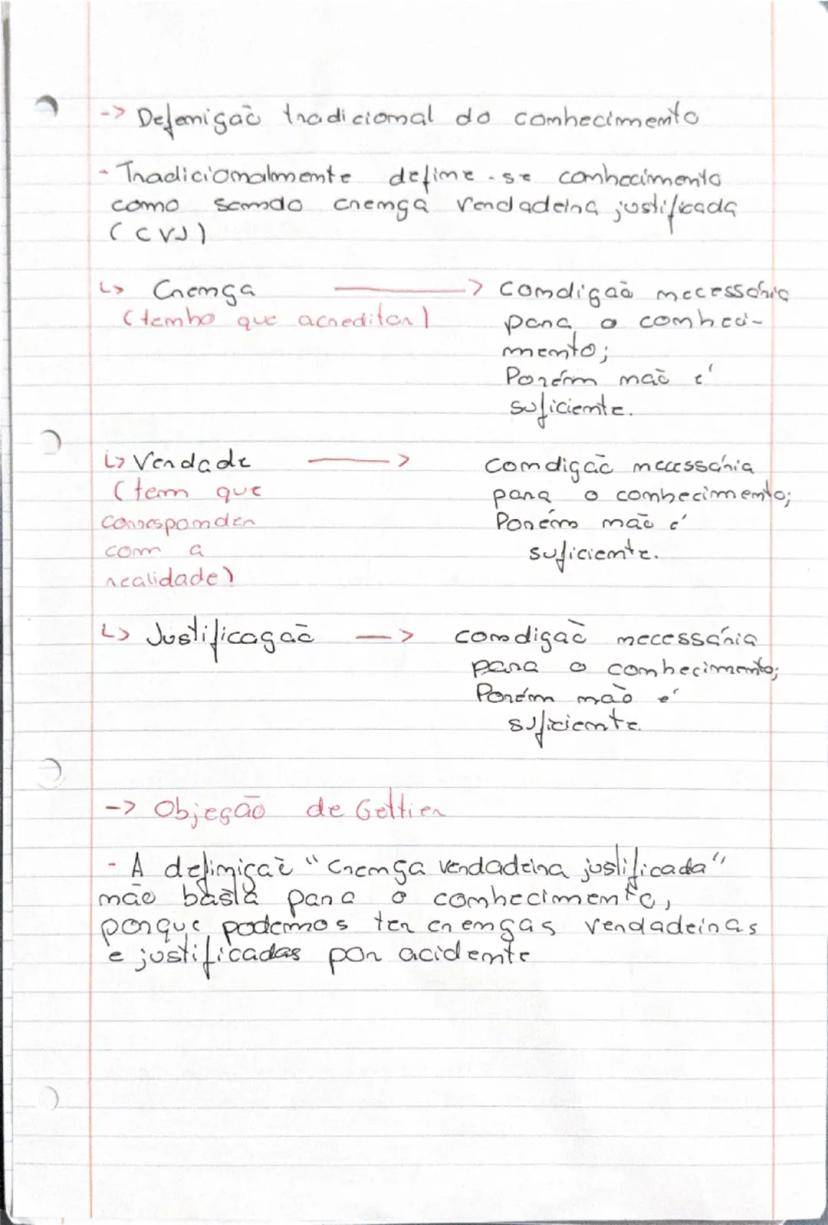 -> Defenição tradicional do conhecimento
- Tradicionalmente define-se conhecimento
como sendo crença verdadeira justificada
(CVJ)
↳ Crença ⟶ condição necessária
(tenho que acreditar) para o conheci-
mento;
Porém não é
suficiente.
↳ Verdade ⟶ condição necessária
(tem que para o conhecimento;
corresponder Porém não é
com a suficiente.
realidade)
↳ Justificação ⟶ condição necessária
para o conhecimento;
Porém não é
suficiente.
-> Objeção de Gettier
- A definição "crença verdadeira justificada"
não basta para o conhecimento,
porque podemos ter crenças verdadeiras
e justificadas por acidente